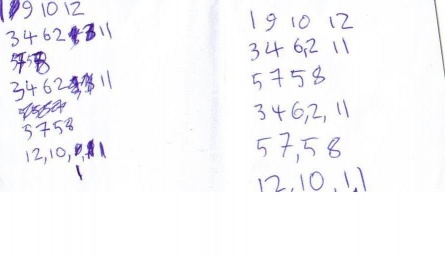 19 10 12
3 4 6 2 11
3 4 6 2 11
5 7 5 8
12, 10,
1 9 10 12
3 4 6,2 11
5 7 5 8
3 4 6,2, 11
5 7, 5 8
12, 10, 1,1